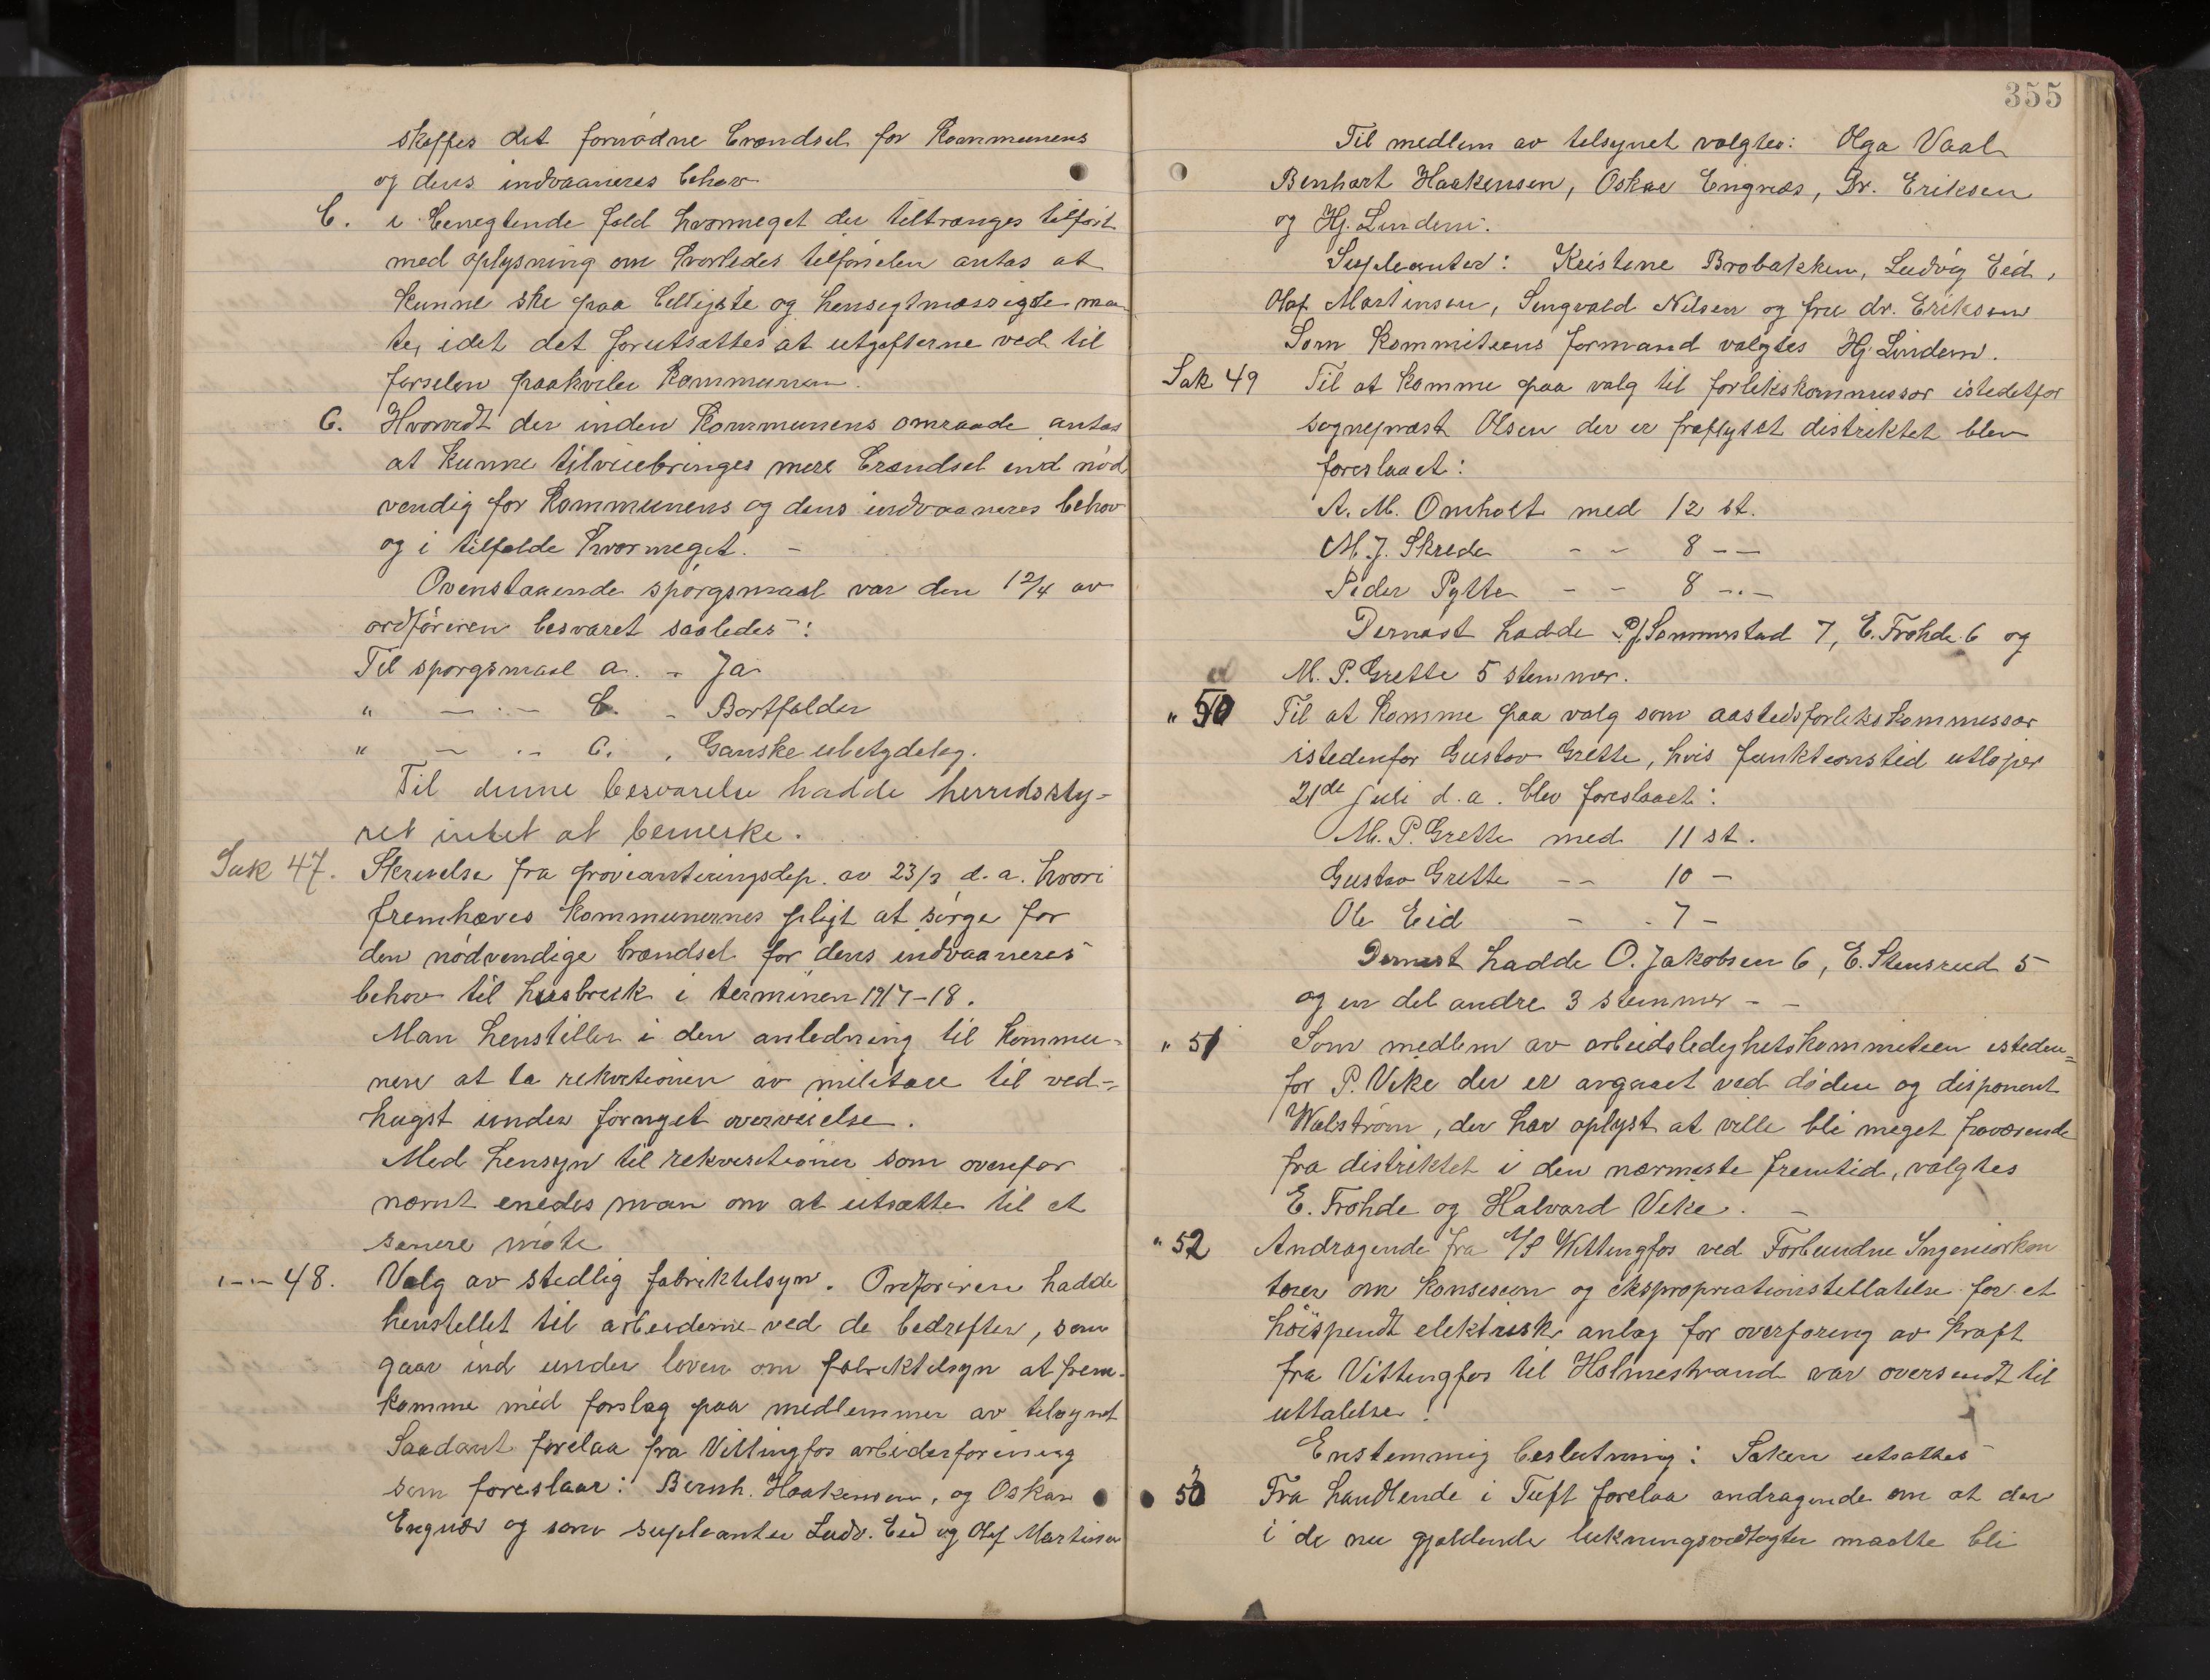 skaffes det fornødne brændsel for kommunens
og dens indvaaneres behov
b. i benegtende fald hvormeget der tiltrænges tilført
med oplysning om hvorledes tilførselen antas at
kunne ske paa billigste og hensigtmæssigste maa
te, idet det forutsættes at utgifterne ved til
førselen paahviler kommunen.
C. Hvorvidt der inden kommunens omraade antas
at kunne tilveiebringes mere brændsel end nød
vendig for kommunens og dens indvaaneres behov
og i tilfælde hvormeget. -
Ovenstaaende spørgsmaal var den 12/4 av
ordføreren besvaret saaledes:
Til spørgsmaal a. - Ja
" — · — b. - Bortfalder
" — · - C. . Ganske ubetydelig.
Til denne besvarelse hadde herredssty-
ret intet at bemerke.
Sak 47. Skrivelse fra provianteringsdep. av 23/3 d.a. hvori
fremhæves kommunernes pligt at sørge for
den nødvendige brændsel for dens indvaaneres
behov til husbruk i terminen 1917-18.
Man henstiller i den anledning til kommu-
nene at ta rekvisitionen av militære til ved-
hugst under fornyet overveielse.
Med hensyn til rekvisitioner som ovenfor
nævnt enedes man om at utsætte til et
senere møte
" — " 48. Valg av stedlig fabriktilsyn. Ordføreren hadde
henstillet til arbeiderne ved de bedrifter, som
gaar ind under loven om fabriktilsyn at frem-
komme med forslag paa medlemmer av tilsynet
Saadant forelaa fra Vittingfos arbeiderforening
som foreslaar: Bernh. Haakensen, og Oskar
Engnæs og som supleanter Ludv. Eid og Olaf Martinsen
355
Til medlem av tilsynet valgtes: Olga Vaal
Benhart Haakensen, Oskar Engnæs, Dr. Eriksen
og Hj. Lindem.
Supleanter: Kristine Brobakken, Ludvig Eid,
Olaf Martinsen, Singvald Nilsen og fru dr. Eriksen
Som kommiteens formand valgtes Hj. Lindem.
Sak 49 Til at komme paa valg til forlikskommissær istedetfor
sogneprest Olsen der er fraflyttet distriktet blev
foreslaaet:
A. M. Omholt med 12 st.
M. J. Skrede - - 8 — —
Peder Pytte - - 8 -.-
Dernæst hadde P. J. Sommerstad 7, E. Frohde 6 og
M. P. Grette 5 stemmer.
" 50 Til at komme paa valg som aastedsforlikskommissær
istedenfor Gustav Grette, hvis funktionstid utløper
21de juli d.a. blev foreslaaet:
M. P. Grette med 11 st.
Gustav Grette - - 10 -
Ole Eid - - 7 -
Dernæst hadde O. Jakobsen 6, E. Stensrud 5
og en del andre 3 stemmer - -
" 51 Som medlem av arbeidsledighetskommiteen isteden=
for P. Vike der er avgaaet ved døden og disponent
Walstrøm, der har oplyst at ville bli meget fraværende
fra distriktet i den nærmeste fremtid, valgtes
E. Frohde og Halvard Vike. -
" 52 Andragende fra A/S Wittingfos ved Forbundne Ingeniørkon
torer om konsesion og ekspropriationstillatelse for et
høispendt elektrisk anlæg for overføring av kraft
fra Vittingfos til Holmestrand var oversendt til
uttalelse.
Enstemmig beslutning: Saken utsættes
" 53 Fra handlende i Tuft forelaa andragende om at der
i de nu gjældende lukningsvedtægter maatte bli